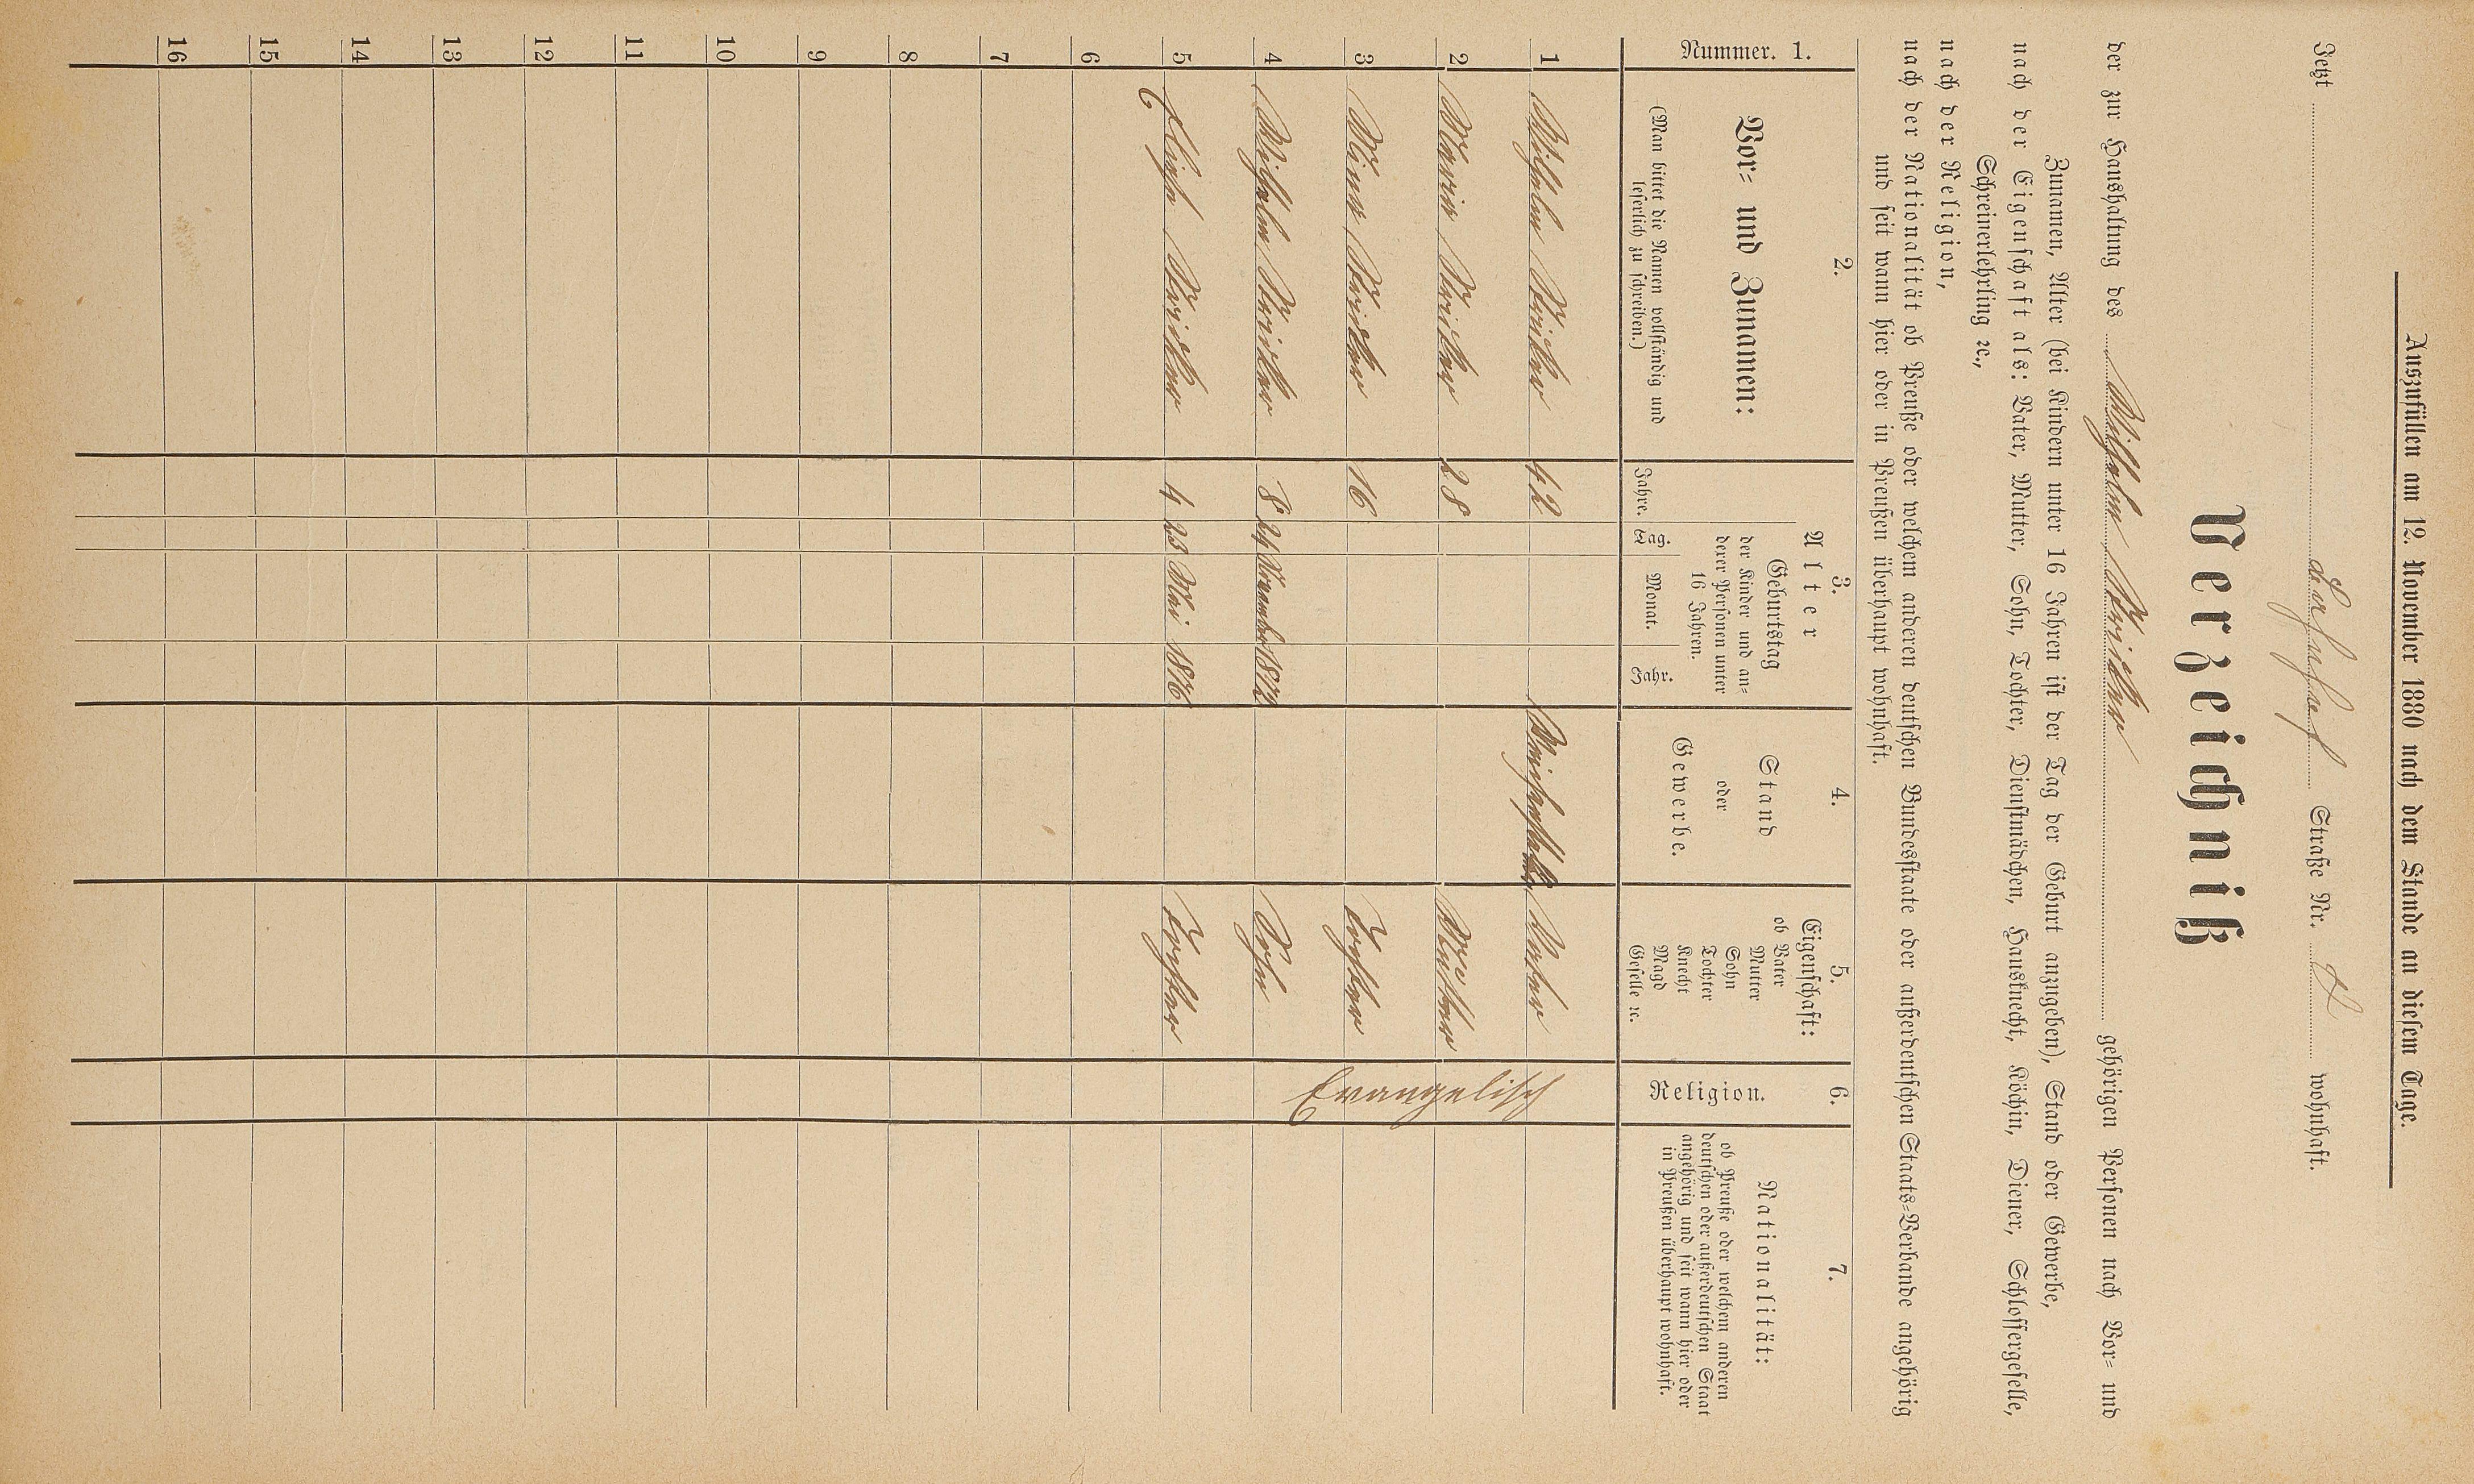 Auszufüllen am 12. November 1880 nach dem Stande an diesem Tage.
Jetzt Straße Nr. wohnhaft.
Verzeichniß
der zur Haushaltung des Wilhelm gehörigen Personen nach Vor- und
Zunamen, Alter (bei Kindern unter 16 Jahren ist der Tag der Geburt anzugeben), Stand oder Gewerbe,
nach der Eigenschaft als: Vater, Mutter, Sohn, Tochter, Dienstmädchen, Hausknecht, Köchin, Diener, Schlossergeselle,
Schreinerlehrling ꝛc.,
nach der Religion,
nach der Nationalität ob Preuße oder welchem anderen deutschen Bundesstaate oder außerdeutschen Staats-Verbande angehörig
und seit wann hier oder in Preußen überhaupt wohnhaft.
1. Nummer.
2. Vor- und Zunamen:
(Man bittet die Namen vollständig und
leserlich zu schreiben.)
3. Alter
Jahre.
Geburtstag
der Kinder und an-
derer Personen unter
16 Jahren.
Tag. Monat. Jahr.
4. Stand
oder
Gewerbe.
5. Eigenschaft:
ob Vater
Mutter
Sohn
Tochter
Knecht
Magd
Geselle ꝛc.
6. Religion.
7. Nationalität:
ob Preuße oder welchem anderen
deutschen oder außerdeutschen Staat
angehörig und seit wann hier oder
in Preußen überhaupt wohnhaft.
1 Wilhelm 42 Vater Evangelisch
2 Maria 28 Mutter
3 Mina 16 Tochter
4 Wilhelm 8 24 November 1872 Sohn
5 Elise 4 23 Mai 1876 Tochter
6
7
8
9
10
11
12
13
14
15
16